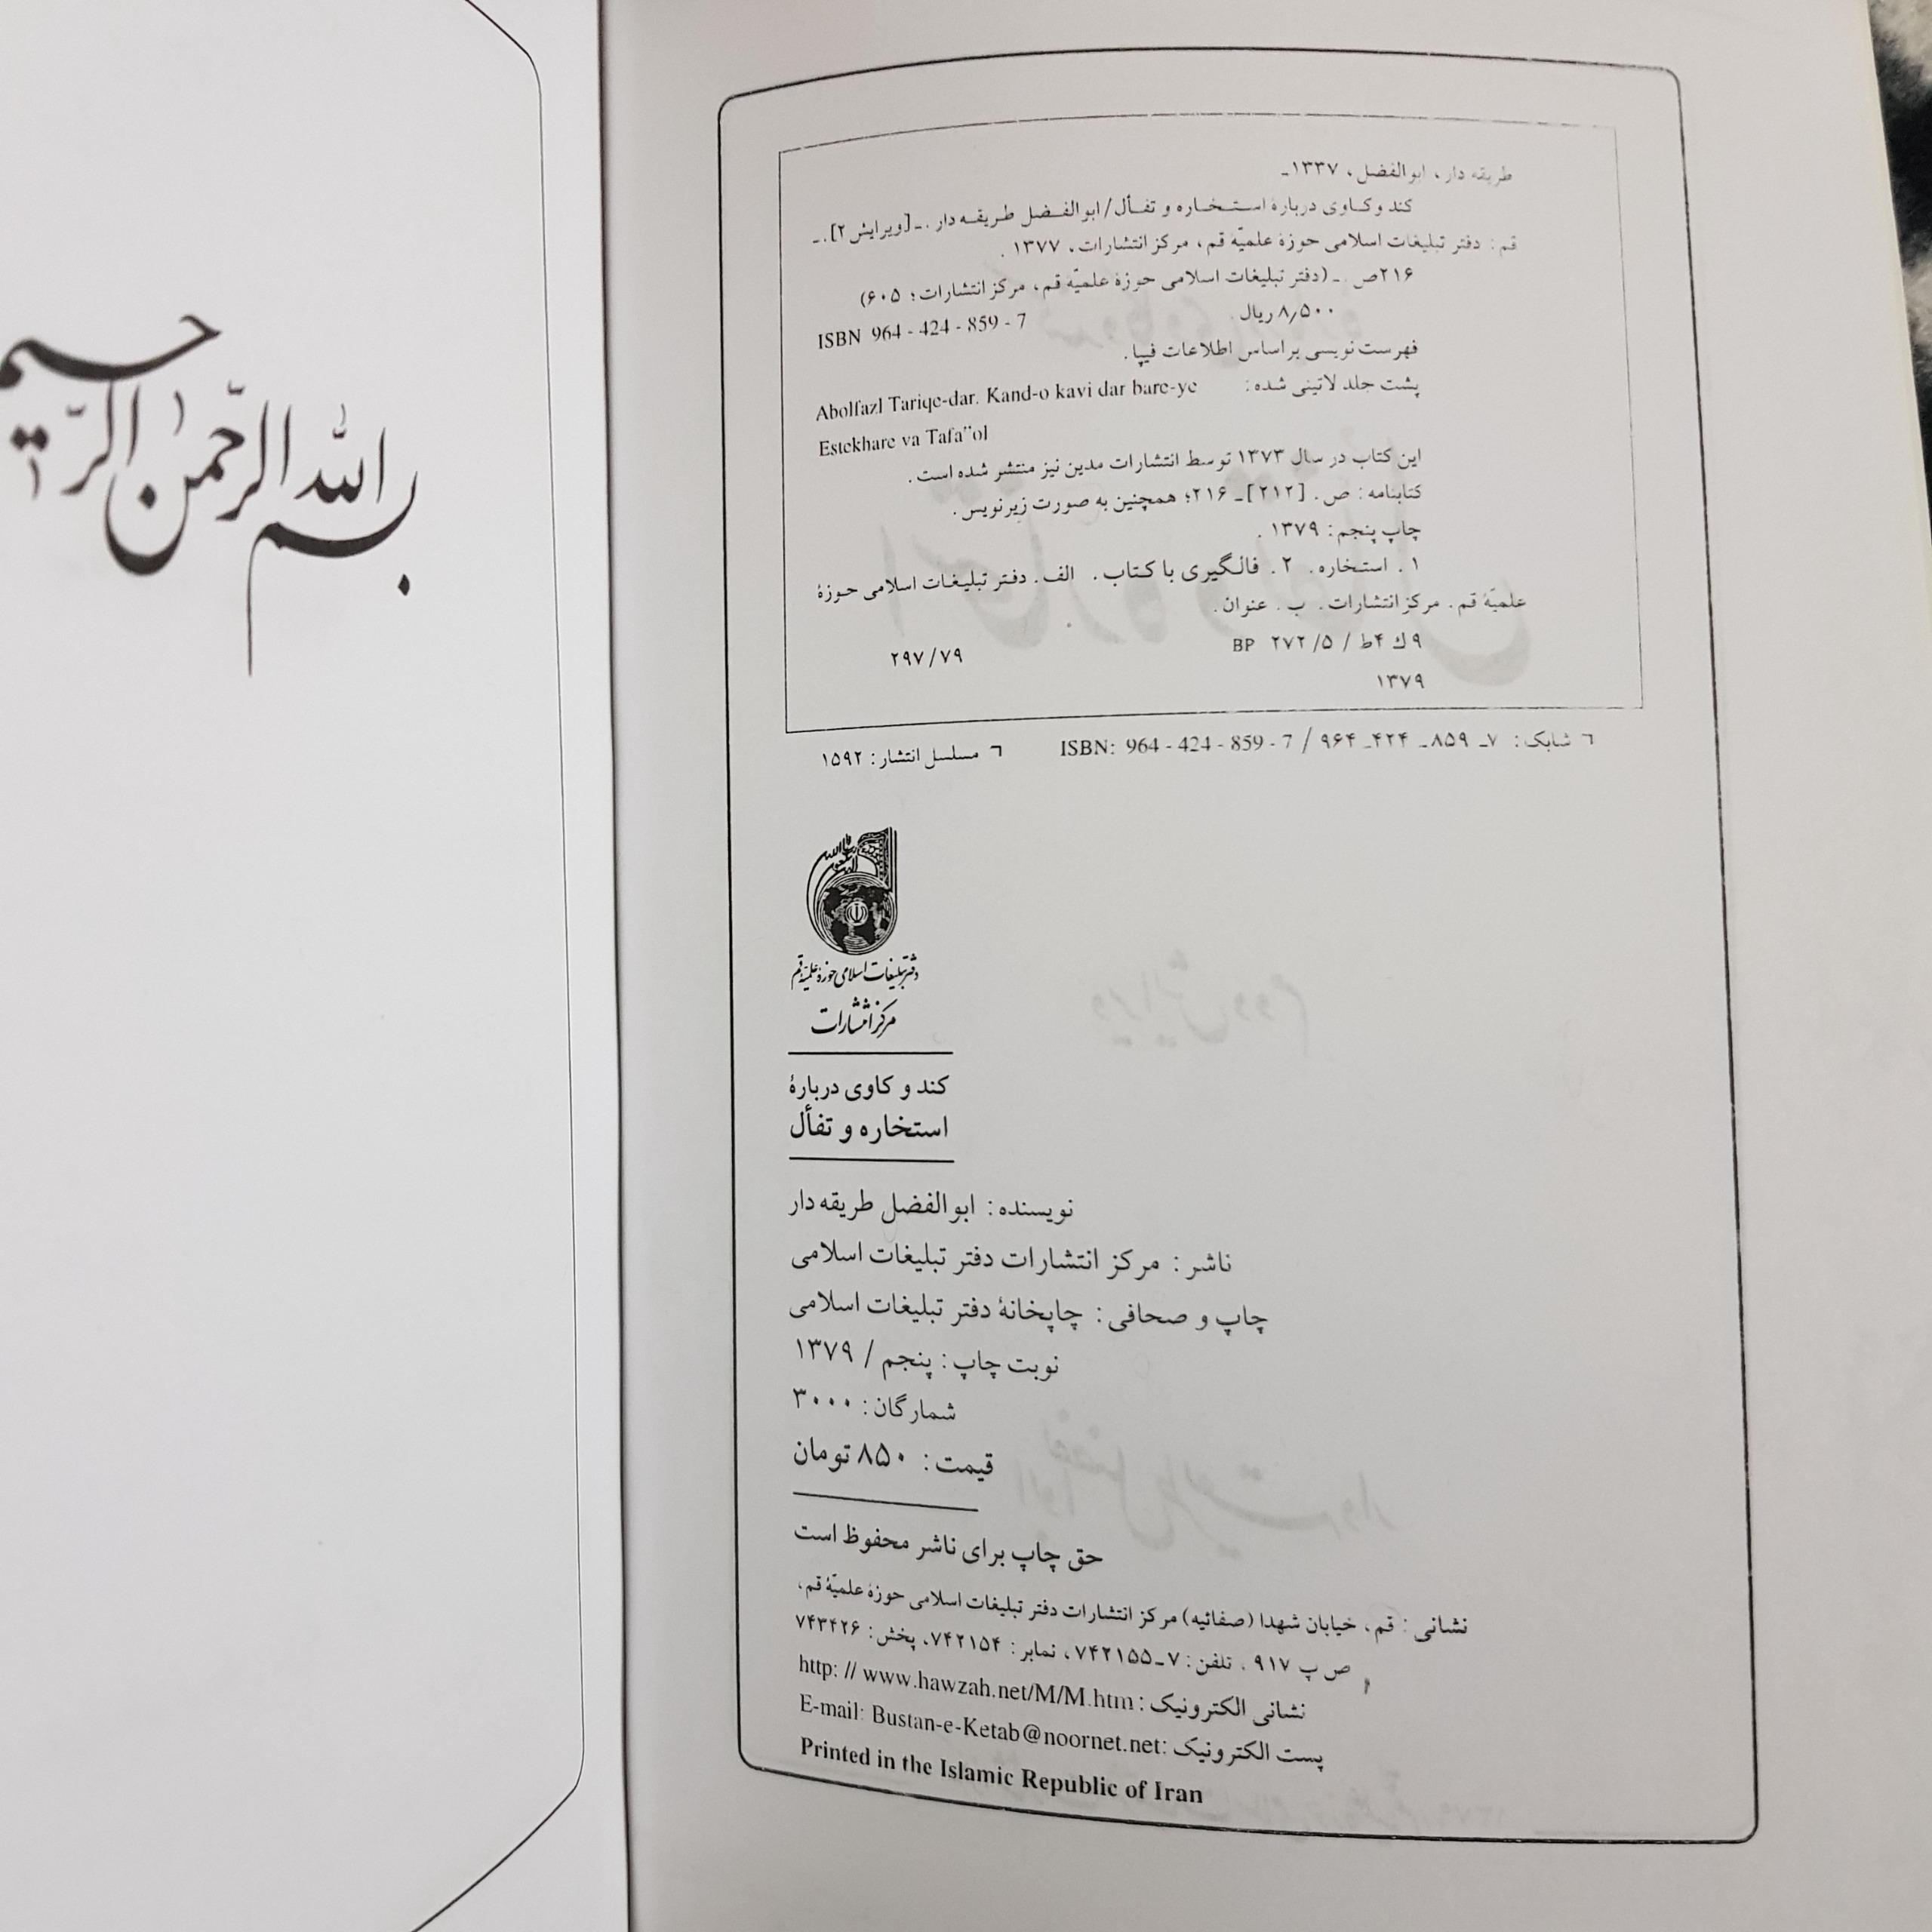 طریقه دار، ابوالفضل، ۱۳۳۷ـ
کند و کاوی دربارهٔ استخاره و تفأل/ابوالفضل طریقه دار. ـ [ویرایش ۲]. ـ
قم: دفتر تبلیغات اسلامی حوزهٔ علمیّهٔ قم، مرکز انتشارات، ۱۳۷۷.
۲۱۶ص. ـ (دفتر تبلیغات اسلامی حوزهٔ علمیّهٔ قم، مرکز انتشارات؛ ۶۰۵)
۸٫۵۰۰ ریال. ISBN 964 - 424 - 859 - 7
فهرست‌نویسی براساس اطلاعات فیپا.
پشت جلد لاتینی شده: Abolfazl Tariqe-dar. Kand-o kavi dar bare-ye
Estekhare va Tafa''ol
این کتاب در سال ۱۳۷۳ توسط انتشارات مدین نیز منتشر شده است.
کتابنامه: ص. [۲۱۲] ـ ۲۱۶؛ همچنین به صورت زیرنویس.
چاپ پنجم: ۱۳۷۹.
۱. استخاره. ۲. فالگیری با کتاب. الف. دفتر تبلیغات اسلامی حوزهٔ
علمیّهٔ قم. مرکز انتشارات. ب. عنوان.
۹ک ۴ط / ۵/ ۲۷۲ BP ۲۹۷/۷۹
۱۳۷۹
شابک: ۷ـ ۸۵۹ـ ۴۲۴ـ ۹۶۴ / ISBN: 964 - 424 - 859 - 7 مسلسل انتشار: ۱۵۹۲
دفتر تبلیغات اسلامی حوزهٔ علمیّهٔ قم
مرکز انتشارات
کند و کاوی دربارهٔ
استخاره و تفأل
نویسنده: ابوالفضل طریقه دار
ناشر: مرکز انتشارات دفتر تبلیغات اسلامی
چاپ و صحافی: چاپخانهٔ دفتر تبلیغات اسلامی
نوبت چاپ: پنجم / ۱۳۷۹
شمارگان: ۳۰۰۰
قیمت: ۸۵۰ تومان
حق چاپ برای ناشر محفوظ است
نشانی: قم، خیابان شهدا (صفائیه) مرکز انتشارات دفتر تبلیغات اسلامی حوزهٔ علمیّهٔ قم،
ص پ ۹۱۷، تلفن: ۷ـ۷۴۲۱۵۵، نمابر: ۷۴۲۱۵۴، پخش: ۷۴۳۴۲۶
نشانی الکترونیک: http: // www.hawzah.net/M/M.htm
پست الکترونیک: E-mail: Bustan-e-Ketab@noornet.net
Printed in the Islamic Republic of Iran
بسم الله الرّحمن الرّحیم